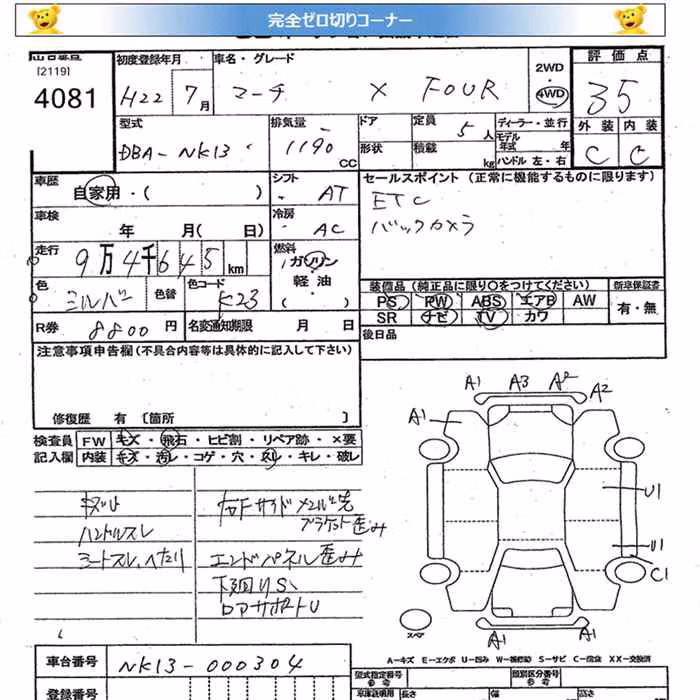 完全ゼロ切りコーナー
[2119]
4081
初度登録年月
H22 7月
車名・グレード
マーチ X FOUR
2WD
・
4WD
評価点
3.5
外装 内装
C C
型式
DBA-NK13
排気量
1190 CC
ドア
形状
定員 5人
積載 kg
ディーラー・並行
モデル年式 年
ハンドル左・右
車歴
自家用・( )
シフト
AT
セールスポイント (正常に機能するものに限ります)
ETC
バックカメラ
車検
年 月( 日)
冷房
AC
走行
9万4千645km
燃料
ガソリン
軽油
・( )
色
シルバー
色替
色コード
K23
装備品 (純正品に限り〇をつけてください)
PS PW ABS エアB AW
SR ナビ TV カワ
新車保証書
有・無
R券 8800円
名変通知期限 月 日
後日品
注意事項申告欄(不具合内容等は具体的に記入して下さい)
修復歴 有 [箇所 ]
検査員記入欄
FW キズ・飛石・ヒビ割・リペア跡・×要
内装 キズ・汚レ・コゲ・穴・スレ・キレ・破レ
キズU
ハンドルスレ
シートスレ、ヘタリ
右Fサイドメンバー先
ブラケット歪み
エンドパネル歪み
下廻りS、
ロアサポートU
A1 A3 A2 A2
A1
U1
U1
C1
スペア
A1 A1
A-キズ E-エクボ U-凹み W-補修跡 S-サビ C-腐食 XX-交換済
車台番号
NK13-000304
登録番号
型式指定番号
参考
類別区分番号
参考
長さ 幅 高さ